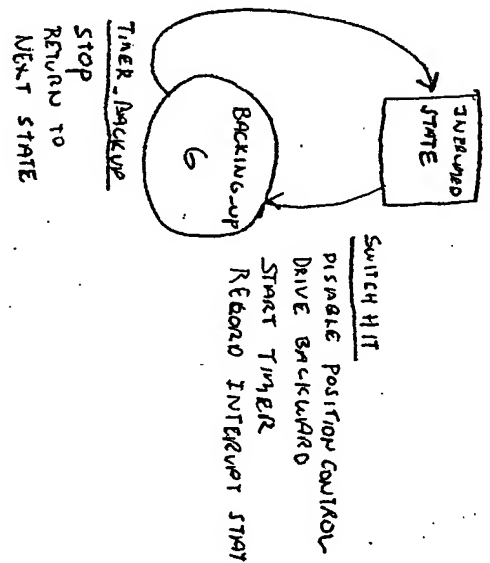 STATE
SWITCH HIT
DISABLE POSITION CONTROL
DRIVE BACKWARD
START TIMER
RECORD INTERUPT
BACKING_UP
6
TIMER_BACKUP
STOP
RETURN TO
NEXT STATE